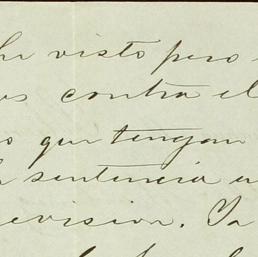 he visto pero
os contra el
o que tengan
sentencia en
revision. Ya